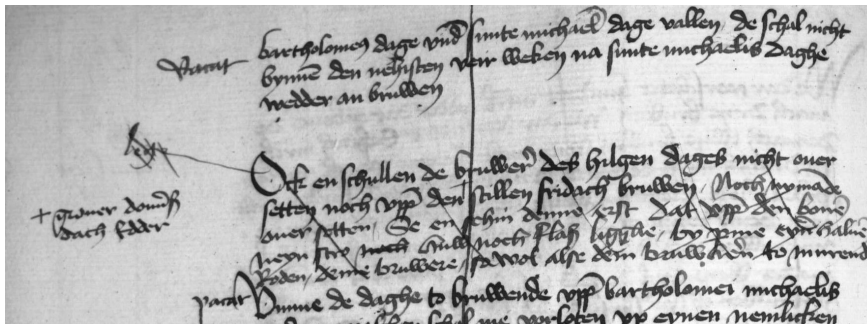 Vacat
bartholomeus dage vnd sunte michael dage vallen de schal nicht
bynnen den nehisten veir weken na sunte michaelis daghe
wedder an bruwen
Ock en schullen de bruwer des hilgen dages nicht ouer
setten noch vpp den stillen fridach bruwen Noch nymande
+ groner donre
dach Edder
ouer setten Se en sehin denne erst dat vpp den bonen
neyn stro noch noch flass ligghe by pine eyn halue
Roden deme bruwere so wol alse dem bruwheren to murend
vacat
Vmme de daghe to bruwende vpp bartholomei michaelis
schal me vorloten vp eynen nemlicken